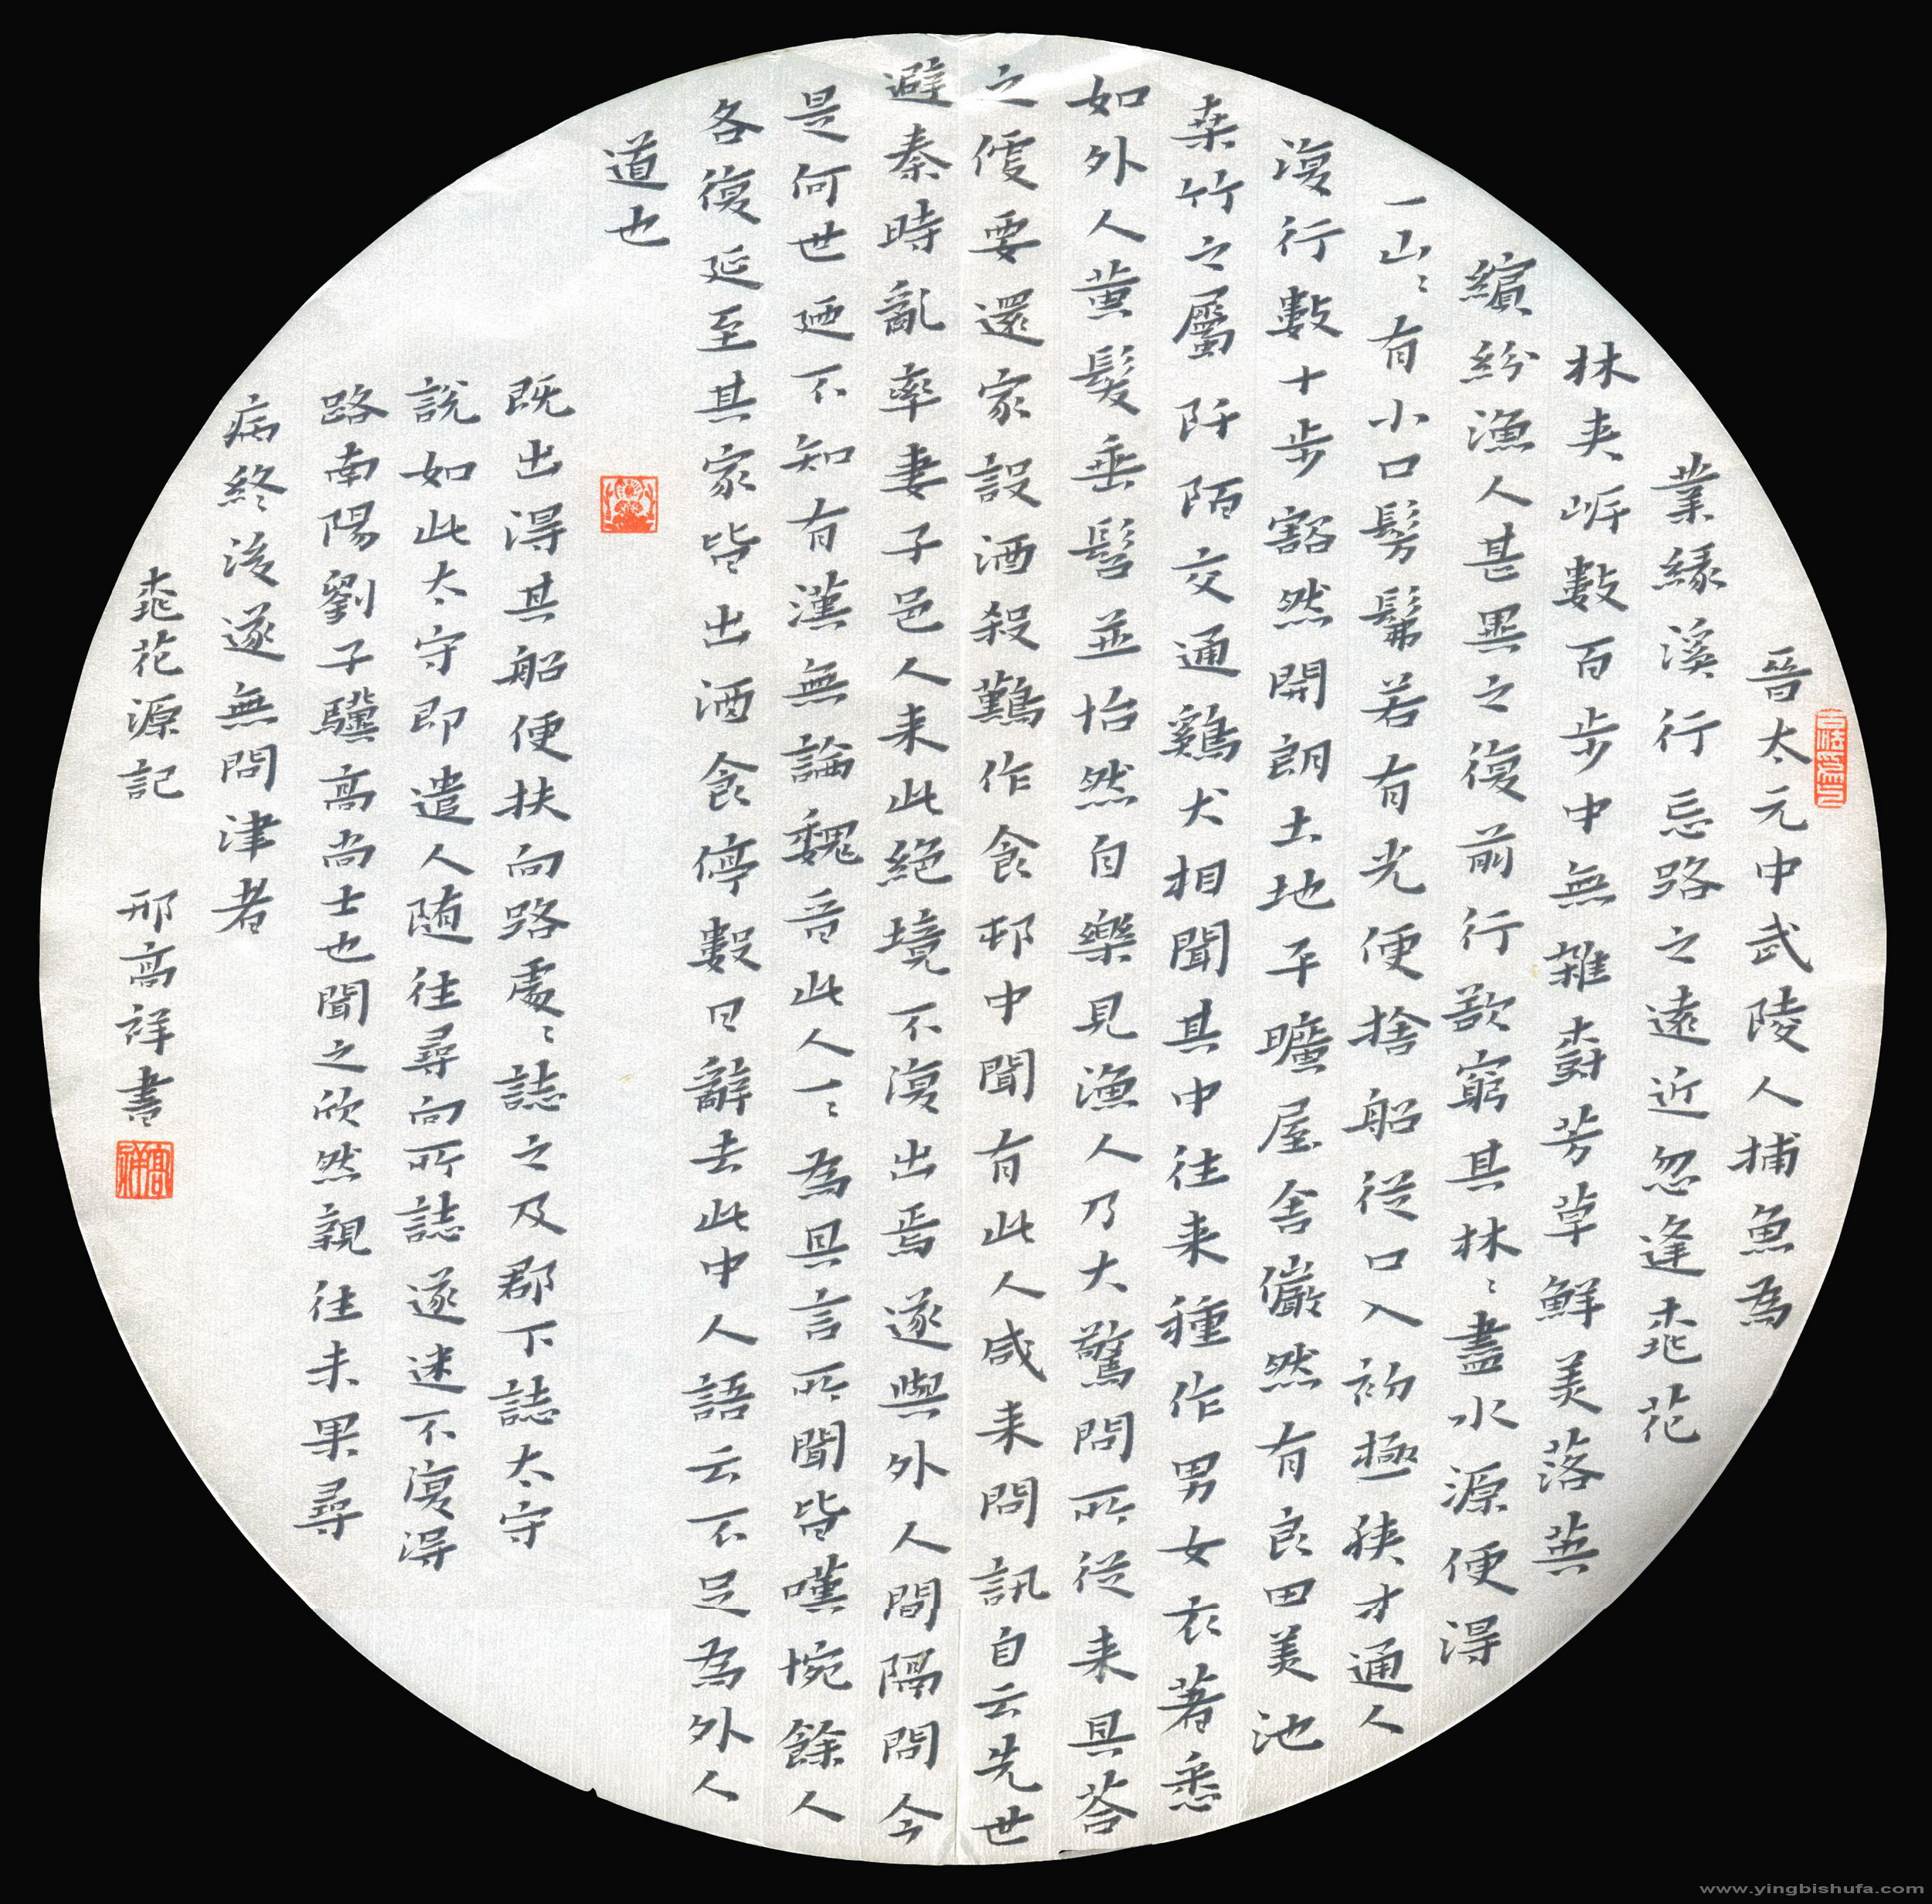 晉太元中武陵人捕魚為
業緣溪行忘路之遠近忽逢桃花
林夾岸數百步中無雜樹芳草鮮美落英
繽紛漁人甚異之復前行欲窮其林〻盡水源便得
一山〻有小口髣髴若有光便捨船從口入初極狹才通人
復行數十步豁然開朗土地平曠屋舍儼然有良田美池
桑竹之屬阡陌交通鷄犬相聞其中往来種作男女衣著悉
如外人黄髮垂髫並怡然自樂見漁人乃大驚問所從来具荅
之便要還家設酒殺鷄作食邨中聞有此人咸来問訊自云先世
避秦時亂率妻子邑人来此絕境不復出焉遂與外人間隔問今
是何世廼不知有漢無論魏晉此人一〻為具言所聞皆嘆惋餘人
各復延至其家皆出酒食停數日辭去此中人語云不足為外人
道也
既出得其船便扶向路處〻誌之及郡下誌太守
說如此太守即遣人随往尋向所誌遂迷不復得
路南陽劉子驥高尚士也聞之欣然親往未果尋
病終後遂無問津者
桃花源記 邢高祥書
高祥
www.yingbishufa.com